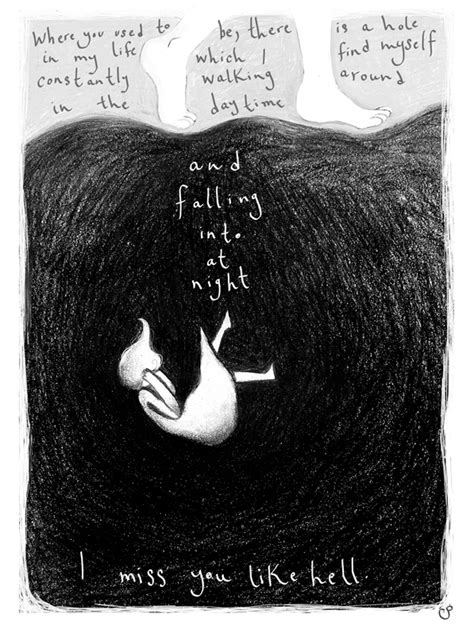 Where you used to be, there is a hole
in my life which I find myself
constantly walking around
in the daytime
and
falling
into
at
night
I miss you like hell.